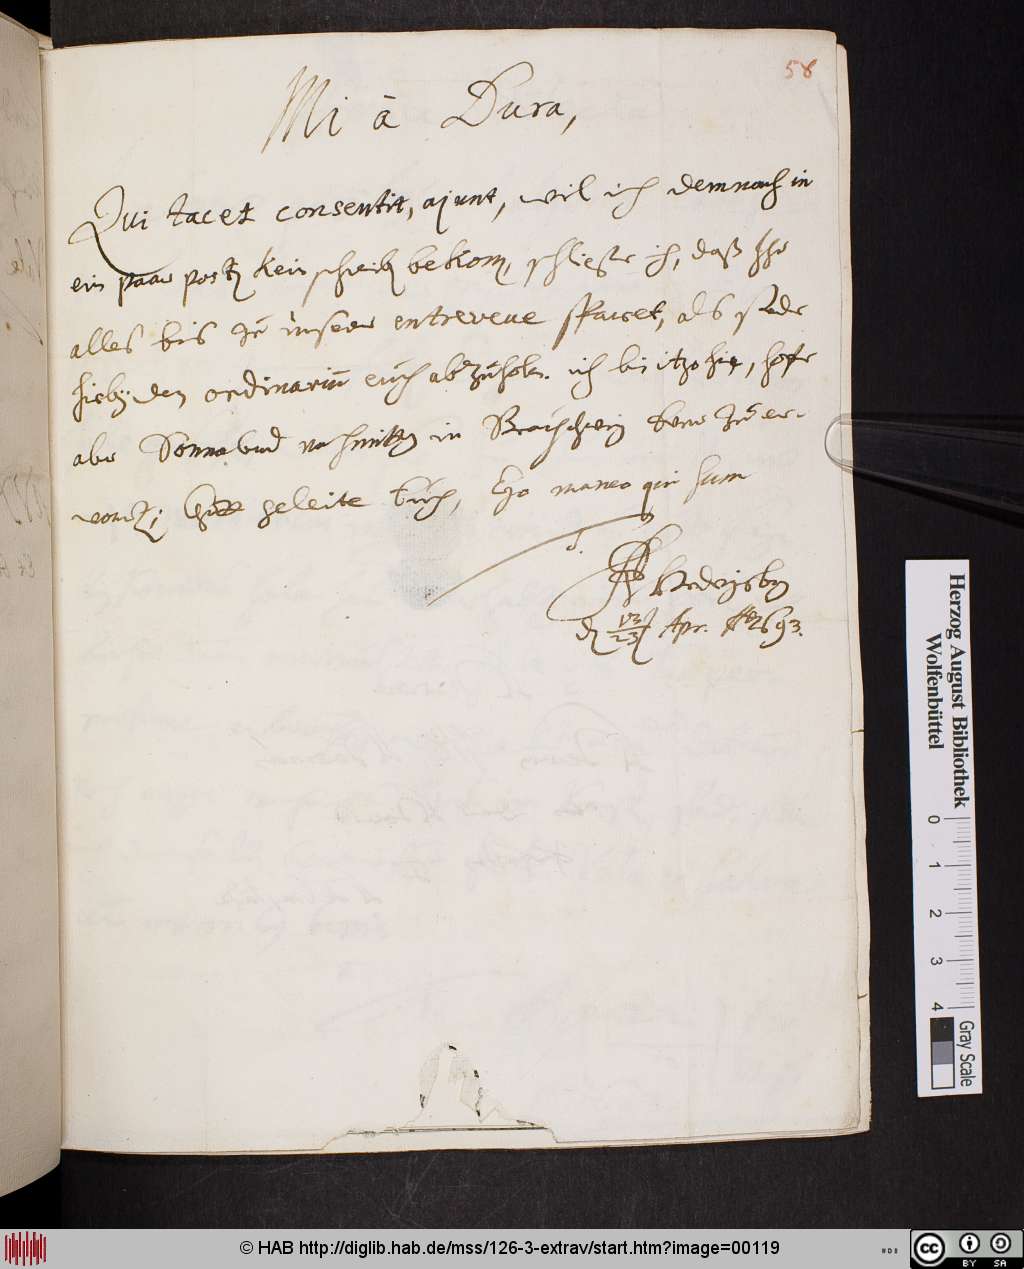 58
Mi à Dura,
Qui tacet consentit, ajunt, weil ich demnach in
ein paar posten kein schreiben bekom, schließe ich, daß Ihr
alles bis zu unserer entreveue sparet, als sende
hiebey den ordinarium euch abzuholen. ich bin itzo hie, hoffe
aber Sonnabend nachmittag in Braunschweig
Gott geleite Euch, Ego maneo qui sum
d. 13/23 Apr. Ao 1693.
Herzog August Bibliothek
Wolfenbüttel
0 1 2 3 4
Gray Scale
© HAB http://diglib.hab.de/mss/126-3-extrav/start.htm?image=00119
cc BY SA